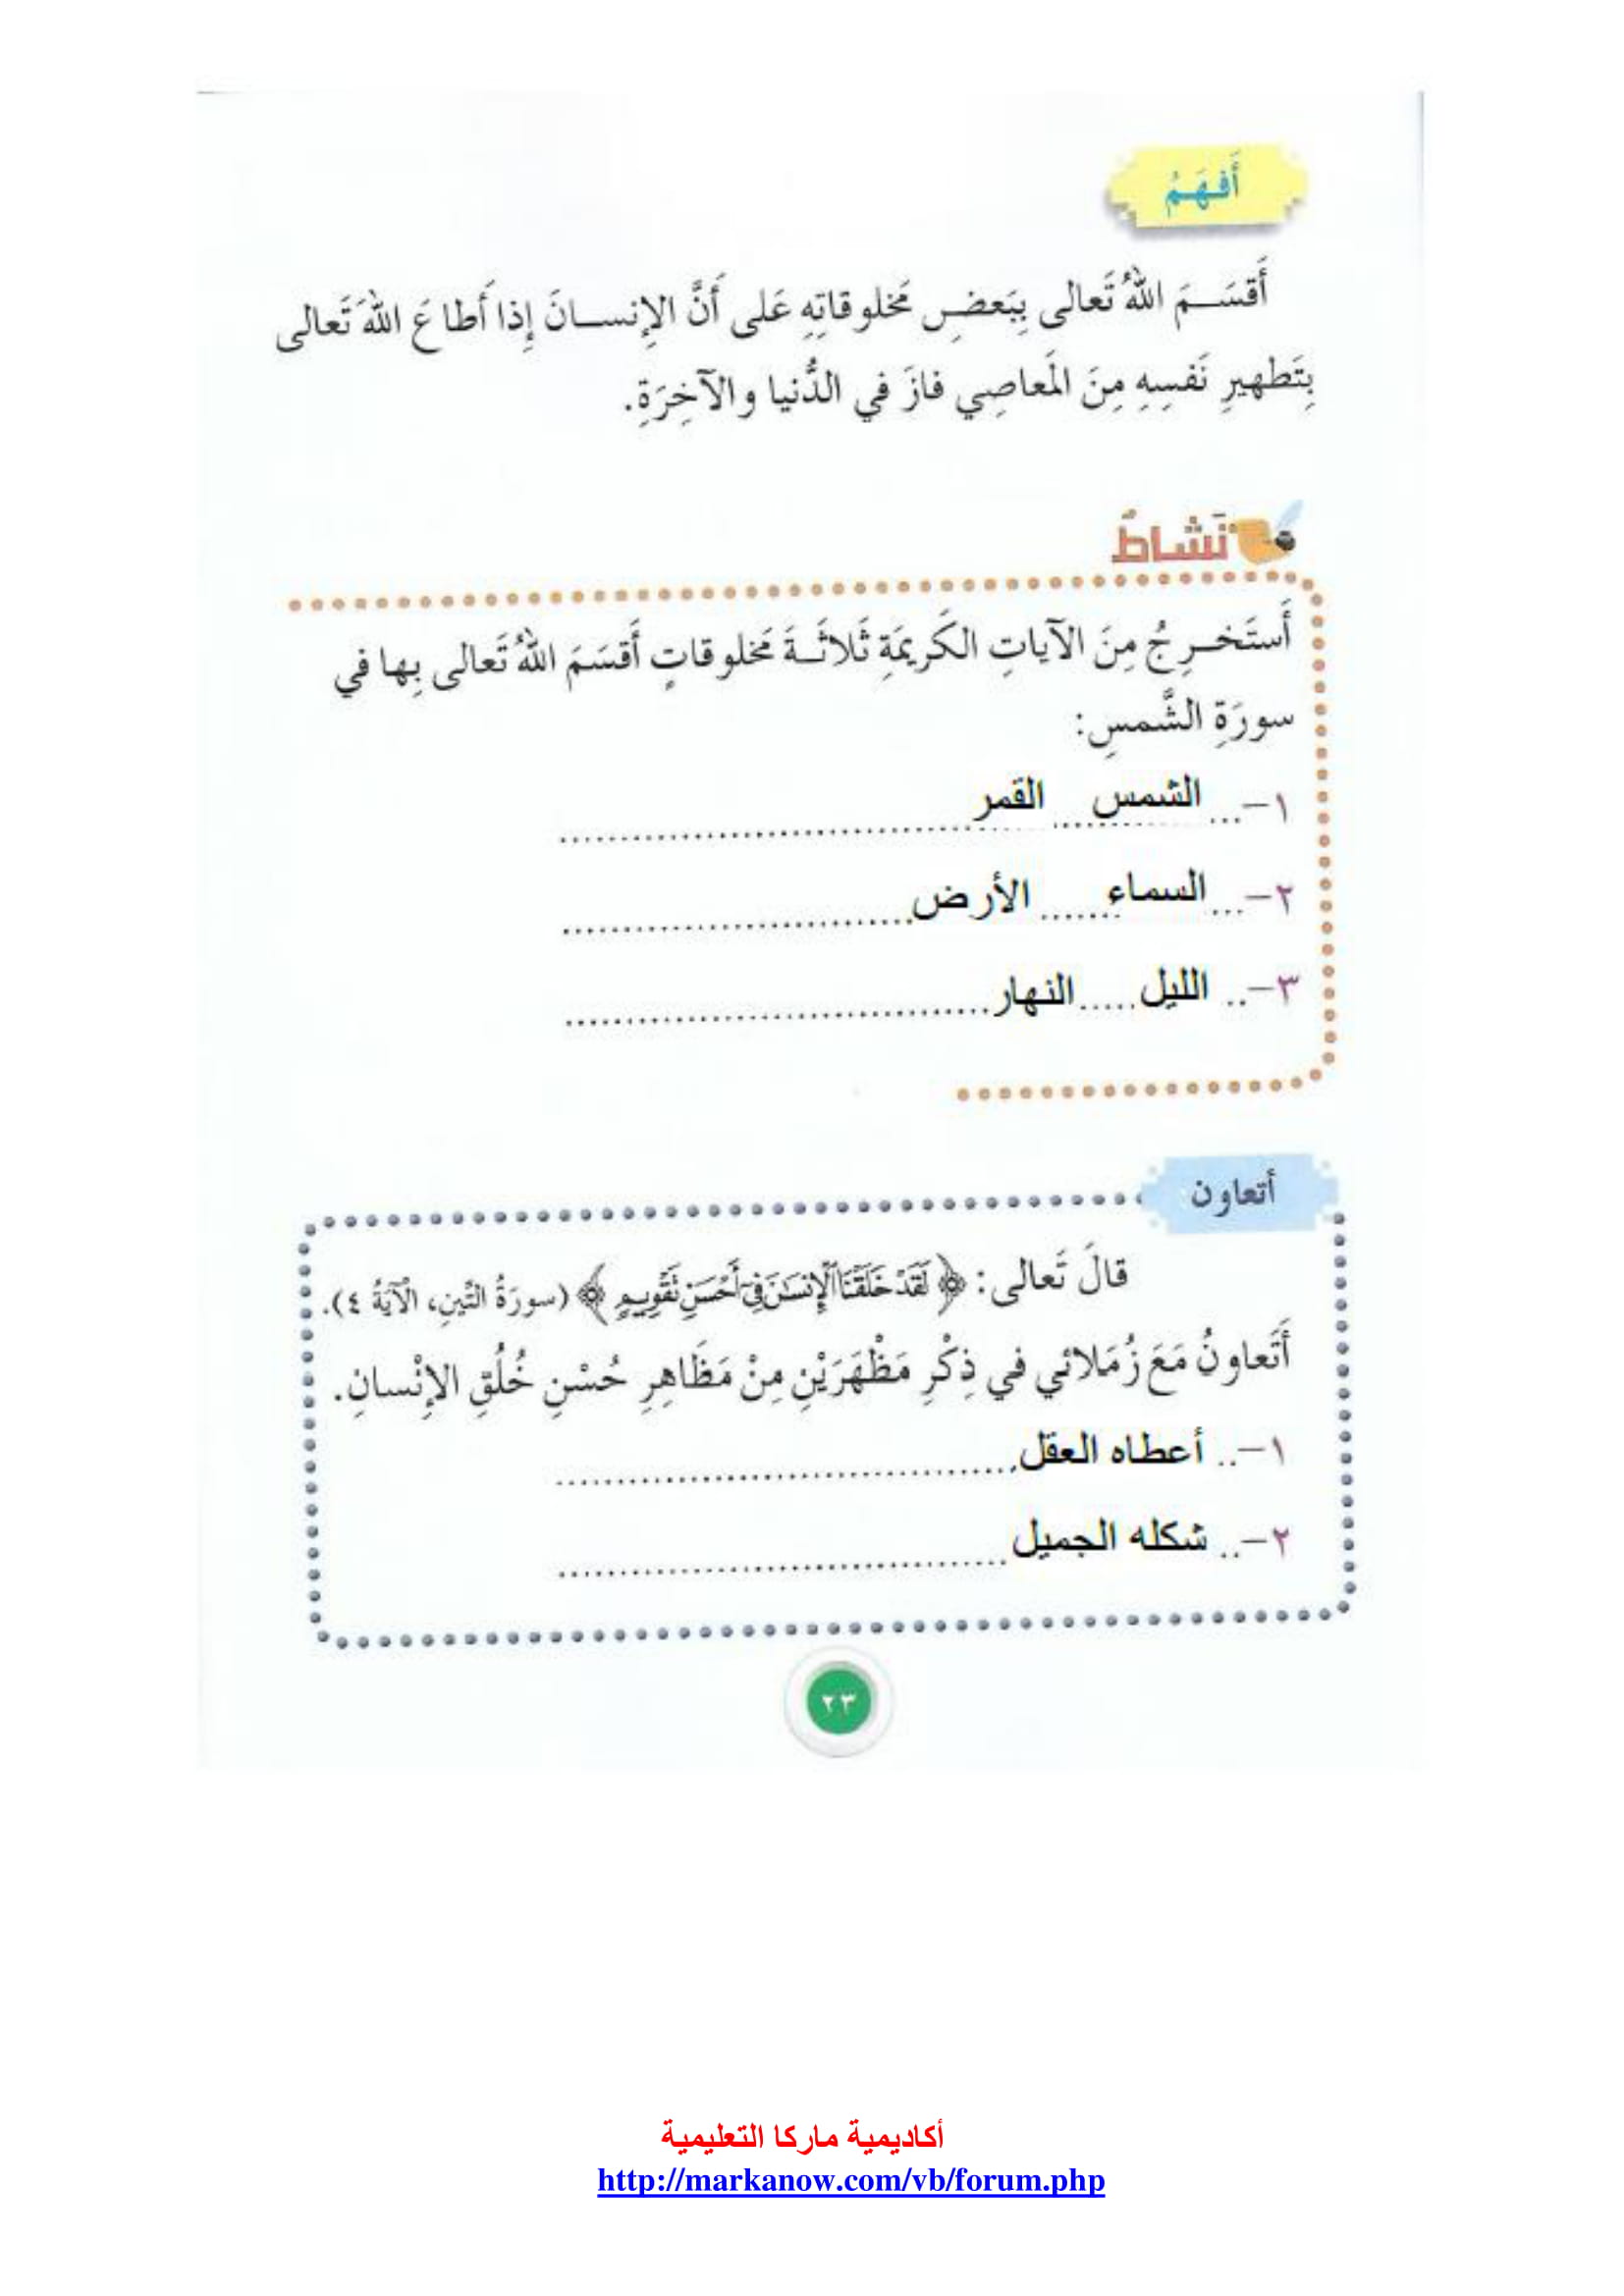 أَفهَمُ
أَقسَمَ اللهُ تَعالى بِبَعضِ مَخلوقاتِهِ عَلى أَنَّ الإِنسانَ إِذا أَطاعَ اللهَ تَعالى
بِتَطهيرِ نَفسِهِ مِنَ المَعاصِي فازَ في الدُّنيا والآخِرَةِ.
نَشاطٌ
أَستَخرِجُ مِنَ الآياتِ الكَريمَةِ ثَلاثَةَ مَخلوقاتٍ أَقسَمَ اللهُ تَعالى بِها في
سورَةِ الشَّمسِ:
١-... الشمس ... القمر ................
٢-... السماء ...... الأرض ................
٣-.. الليل ..... النهار ................
أتعاون
قالَ تَعالى: ﴿ لَقَدْ خَلَقْنَا ٱلْإِنسَٰنَ فِىٓ أَحْسَنِ تَقْوِيمٍ ﴾ (سورَةُ التِّينِ، الْآيَةُ ٤).
أَتَعاونُ مَعَ زُمَلائي في ذِكْرِ مَظْهَرَيْنِ مِنْ مَظَاهِرِ حُسْنِ خُلُقِ الإِنْسانِ.
١-.. أعطاه العقل ................
٢-.. شكله الجميل ................
٢٣
أكاديمية ماركا التعليمية
http://markanow.com/vb/forum.php